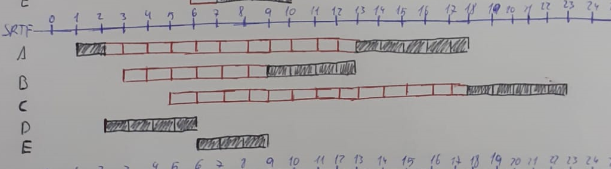 E
0 1 2 3 4 5 6 7 8 9 10 11 12 13 14 15 16 17 18 19 20 21 22 23 24
SRTF
A
B
C
D
E
4 5 6 7 8 9 10 11 12 13 14 15 16 17 18 19 20 21 22 23 24